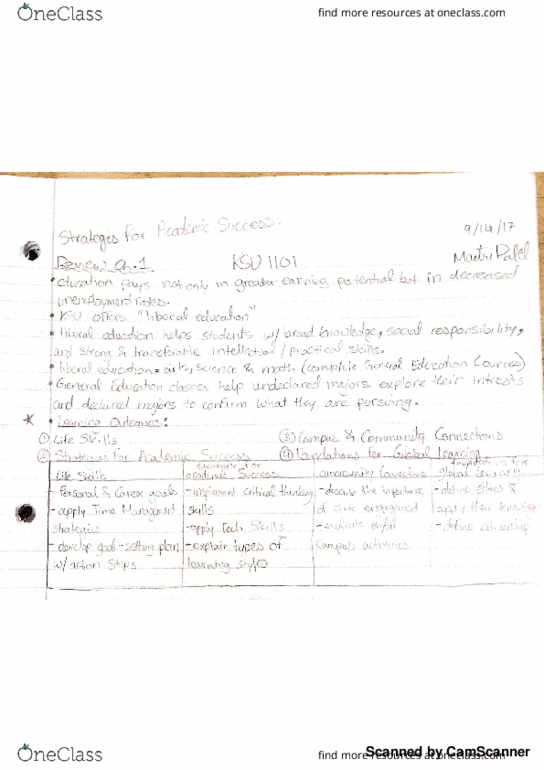 OneClass
find more resources at oneclass.com
Strategies for Academic Success.
9/14/17
Review Ch. 1
KSU 1101
Patel
• Education pays not only in greater earning potential but in decreased
unemployment rates.
• KSU offers "liberal education"
• liberal education helps students w/ broad knowledge, social responsibility,
and strong & transferable intellectual / practical skills.
• liberal education = arts, science & math (complete General Education Courses)
• General Education classes help undeclared majors explore their intrests
and declared majors to confirm what they are pursuing.
* • Learning Outcomes:
① Life Skills
③ Campus & Community Connections
② Strategies for Academic Success
④ Foundations for Global Learning
Life Skills
Strategies for
academic Success
community Connections
foundations for
global learning
- Personal & Career goals
- apply Time Management
strategies
- develop goal-setting plan
w/ action Steps
- implement critical thinking
skills
- apply Tech Skills
- explain types of
learning styles
- describe the importance
of civic engagement
- evaluate
campus activities.
- define ethics &
apply their knowledge
- define citizenship
OneClass
find more resources at oneclass.com
Scanned by CamScanner